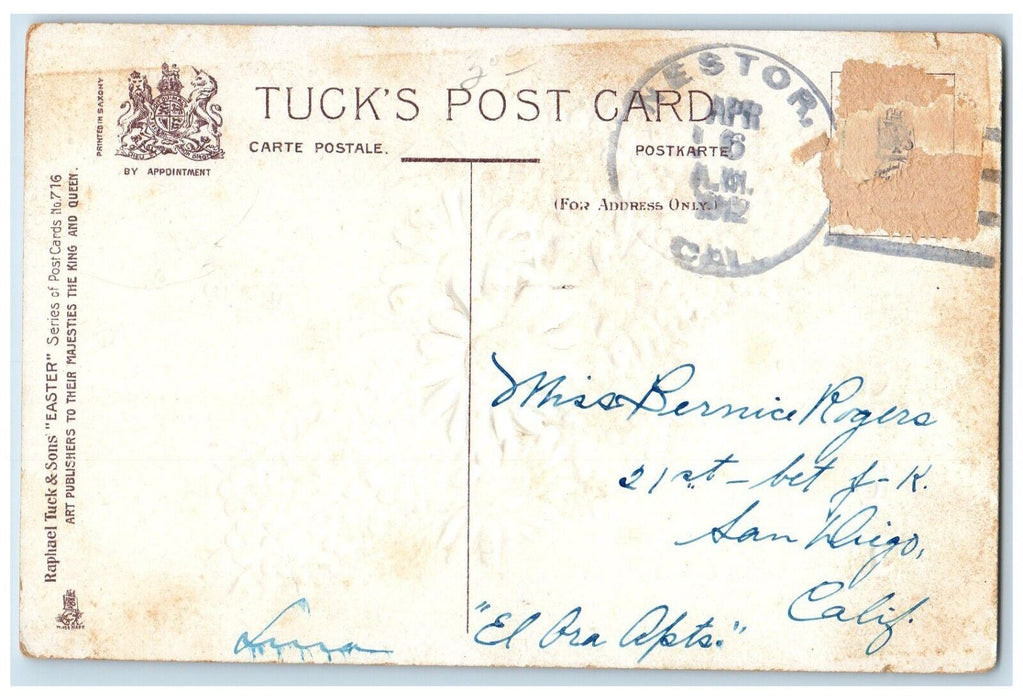 PRINTED IN SAXONY
BY APPOINTMENT
TUCK'S POST CARD
CARTE POSTALE.
POSTKARTE
(FOR ADDRESS ONLY.)
NESTOR,
APR
16
A.M.
1912
CAL.
Raphael Tuck & Sons' "EASTER" Series of Post Cards No. 716
ART PUBLISHERS TO THEIR MAJESTIES THE KING AND QUEEN.
Miss Bernice Rogers
21st - bet J - K.
San Diego,
Calif.
"El Ora Apts."